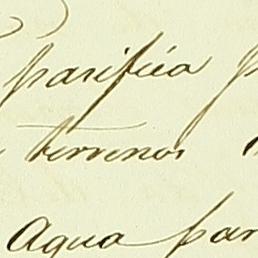 pacifica p
terrenos
Agua par